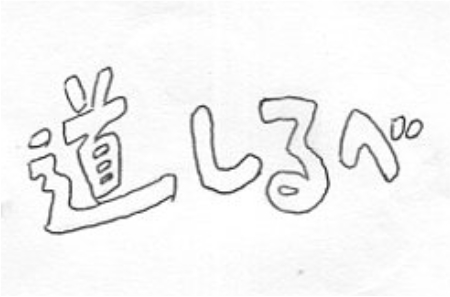 道しるべ